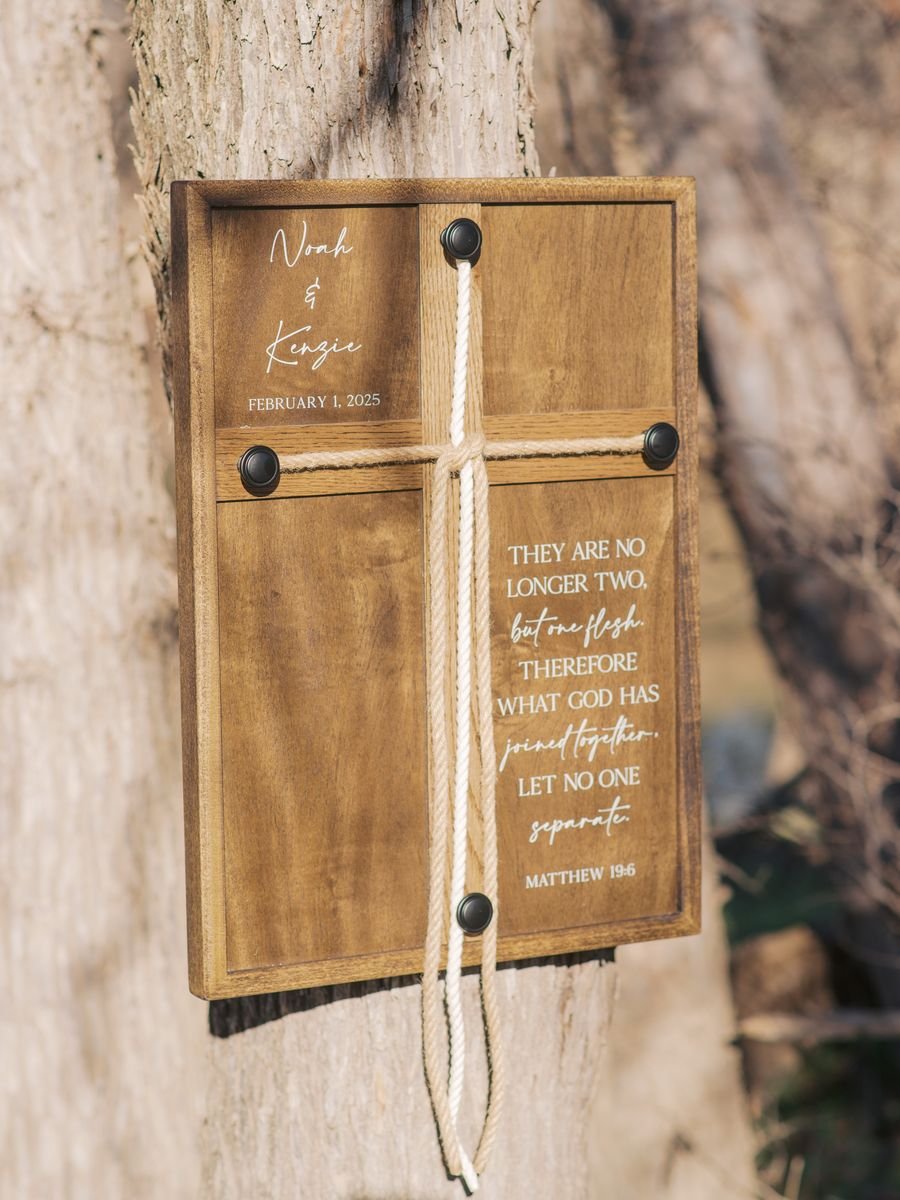 Noah
&
Kenzie
FEBRUARY 1, 2025
THEY ARE NO
LONGER TWO,
but one flesh.
THEREFORE
WHAT GOD HAS
joined together,
LET NO ONE
separate.
MATTHEW 19:6